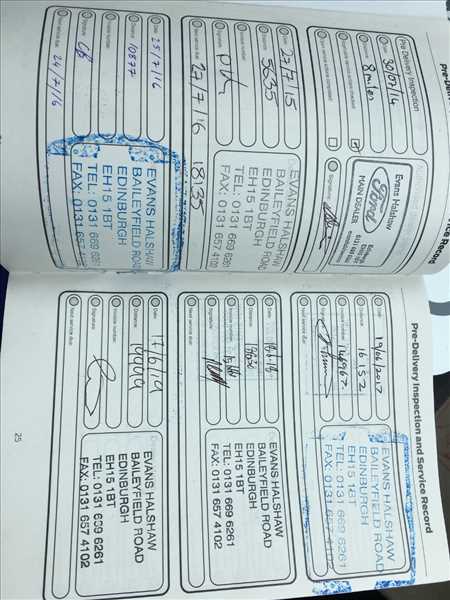 Pre Delivery Inspection
Date:
30/07/14
8 miles
Evans Halshaw
Ford
MAIN DEALER
Signature:
27/7/15
5635
Next service due:
27/7/16 18135
EVANS HALSHAW
BAILEYFIELD ROAD
EDINBURGH
EH15 1BT
TEL: 0131 669 6261
FAX: 0131 657 4102
Date:
25/7/16
Distance:
10877
Signature:
Next service due:
24/7/16
EVANS HALSHAW
BAILEYFIELD ROAD
EDINBURGH
EH15 1BT
TEL: 0131 669 6261
FAX: 0131 657
Pre-Delivery Inspection and Service Record
Date:
19/06/2017
Distance:
16152
Invoice number:
Signature:
Next service due:
EVANS HALSHAW
BAILEYFIELD ROAD
EDINBURGH
EH15 1BT
TEL: 0131 669 6261
FAX: 0131 657
Date:
Distance:
Invoice number:
Signature:
Next service due:
EVANS HALSHAW
BAILEYFIELD ROAD
EDINBURGH
EH15 1BT
TEL: 0131 669 6261
FAX: 0131 657 4102
Date:
17/6/19
Distance:
Invoice number:
Signature:
Next service due:
EVANS HALSHAW
BAILEYFIELD ROAD
EDINBURGH
EH15 1BT
TEL: 0131 669 6261
FAX: 0131 657 4102
25